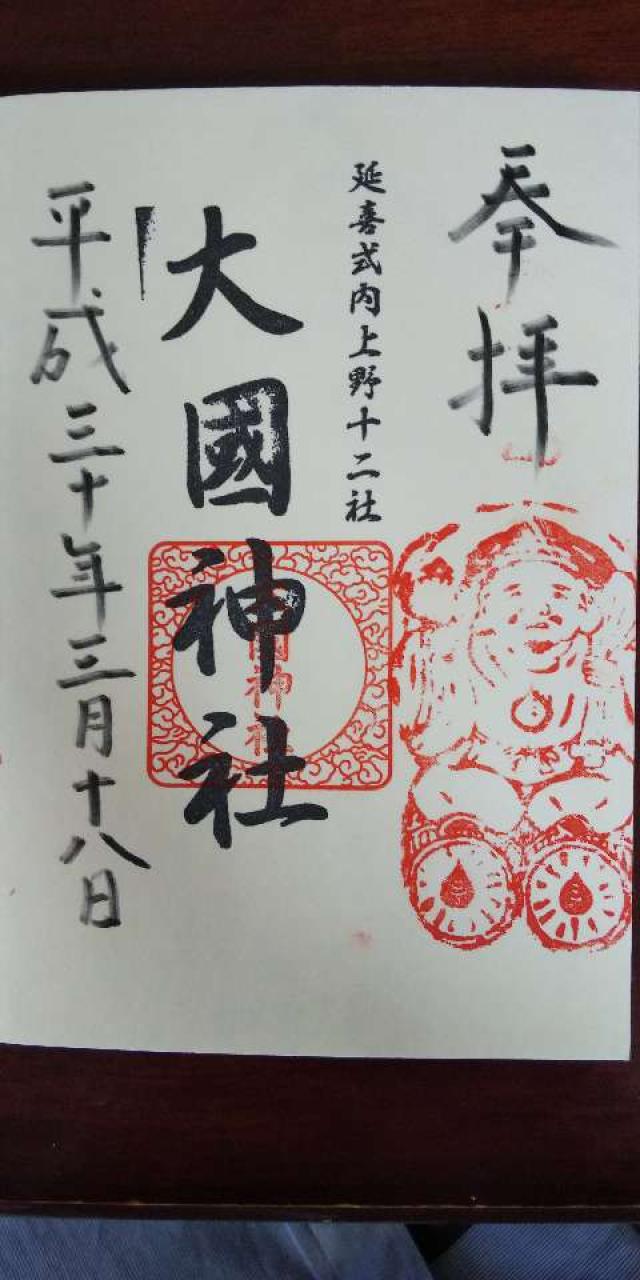 奉拝
延喜式内上野十二社
大國神社
國神社
平成三十年三月十八日